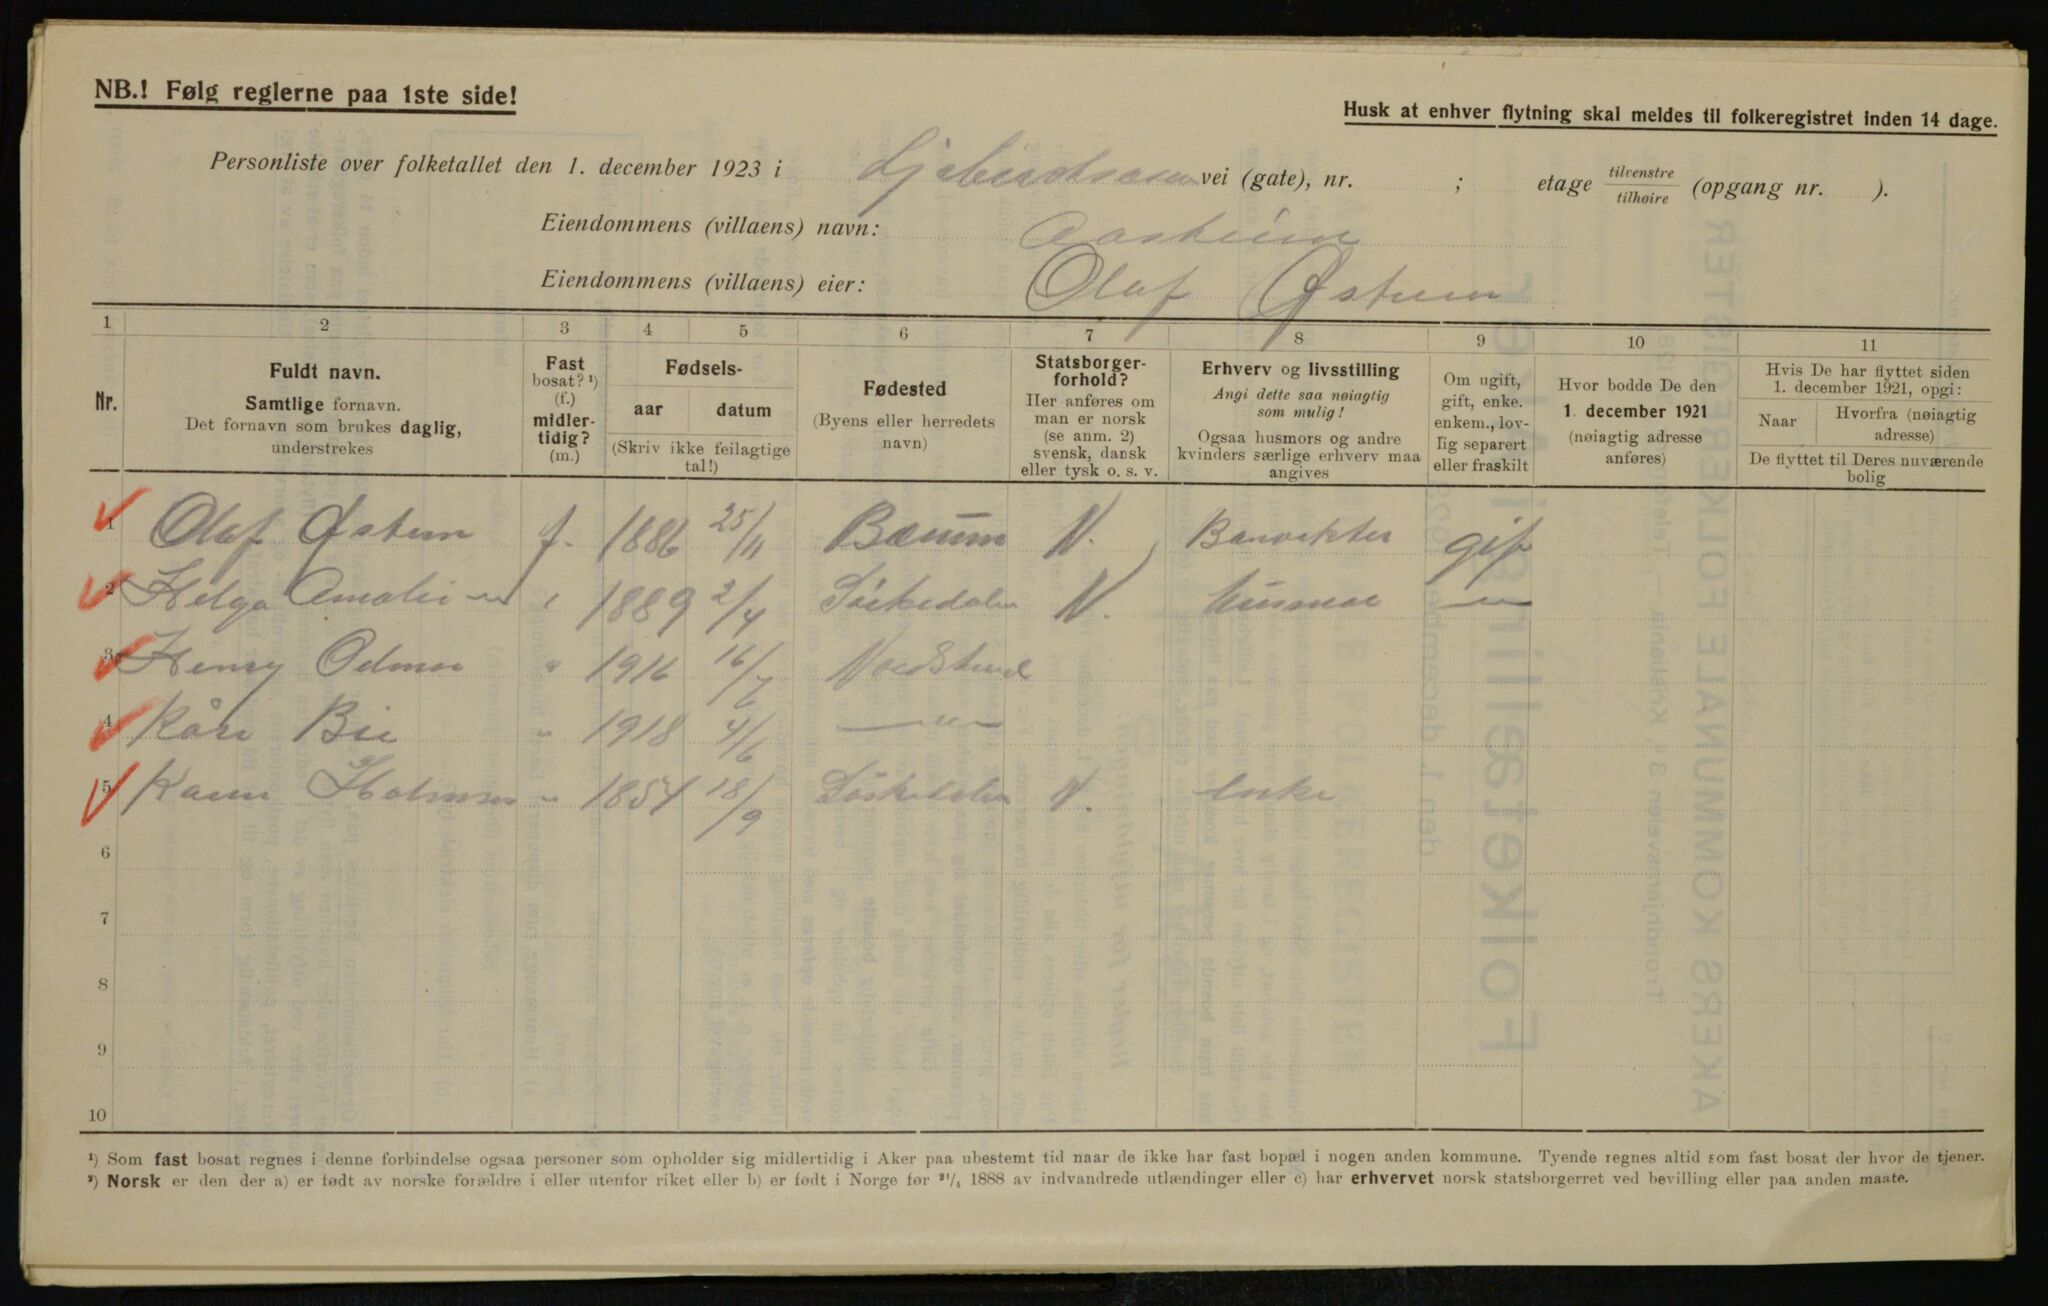 NB.! Følg reglerne paa 1ste side!
Husk at enhver flytning skal meldes til folkeregistret inden 14 dage.
Personliste over folketallet den 1. december 1923 i vei (gate), nr. ; etage tilvenstre tilhøire (opgang nr. ).
Eiendommens (villaens) navn: Aasheim
Eiendommens (villaens) eier: Olaf Østern
1 2 3 4 5 6 7 8 9 10 11
Nr.
Fuldt navn.
Samtlige fornavn.
Det fornavn som brukes daglig,
understrekes
Fast
bosat? ¹)
(f.)
midler-
tidig?
(m.)
Fødsels-
aar datum
(Skriv ikke feilagtige
tal!)
Fødested
(Byens eller herredets
navn)
Statsborger-
forhold?
Her anføres om
man er norsk
(se anm. 2)
svensk, dansk
eller tysk o. s. v.
Erhverv og livsstilling
Angi dette saa nøiagtig
som mulig!
Ogsaa husmors og andre
kvinders særlige erhverv maa
angives
Om ugift,
gift, enke.
enkem., lov-
lig separert
eller fraskilt
Hvor bodde De den
1. december 1921
(nøiagtig adresse
anføres)
Hvis De har flyttet siden
1. december 1921, opgi:
Naar Hvorfra (nøiagtig
adresse)
De flyttet til Deres nuværende
bolig
1 Olaf Østern f. 1886 25/11 Bærum N. gift
2 Helga Amalie — " — " 1889 2/4 Sørkedalen N. Husmor — " —
3 Henry Odmar " 1916 16/7 Nordstrand
4 Kåre Bie " 1918 4/6 — " —
5 Karen Halvorsen " 1851 18/9 Sørkedalen N. Enke
6
7
8
9
10
¹) Som fast bosat regnes i denne forbindelse ogsaa personer som opholder sig midlertidig i Aker paa ubestemt tid naar de ikke har fast bopæl i nogen anden kommune. Tyende regnes altid som fast bosat der hvor de tjener.
²) Norsk er den der a) er født av norske forældre i eller utenfor riket eller b) er født i Norge før ²¹/₄ 1888 av indvandrede utlændinger eller c) har erhvervet norsk statsborgerret ved bevilling eller paa anden maate.